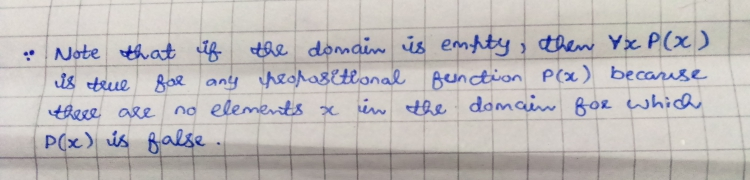 ∵ Note that if the domain is empty, then ∀x P(x)
is true for any propositional function P(x) because
there are no elements x in the domain for which
P(x) is false.